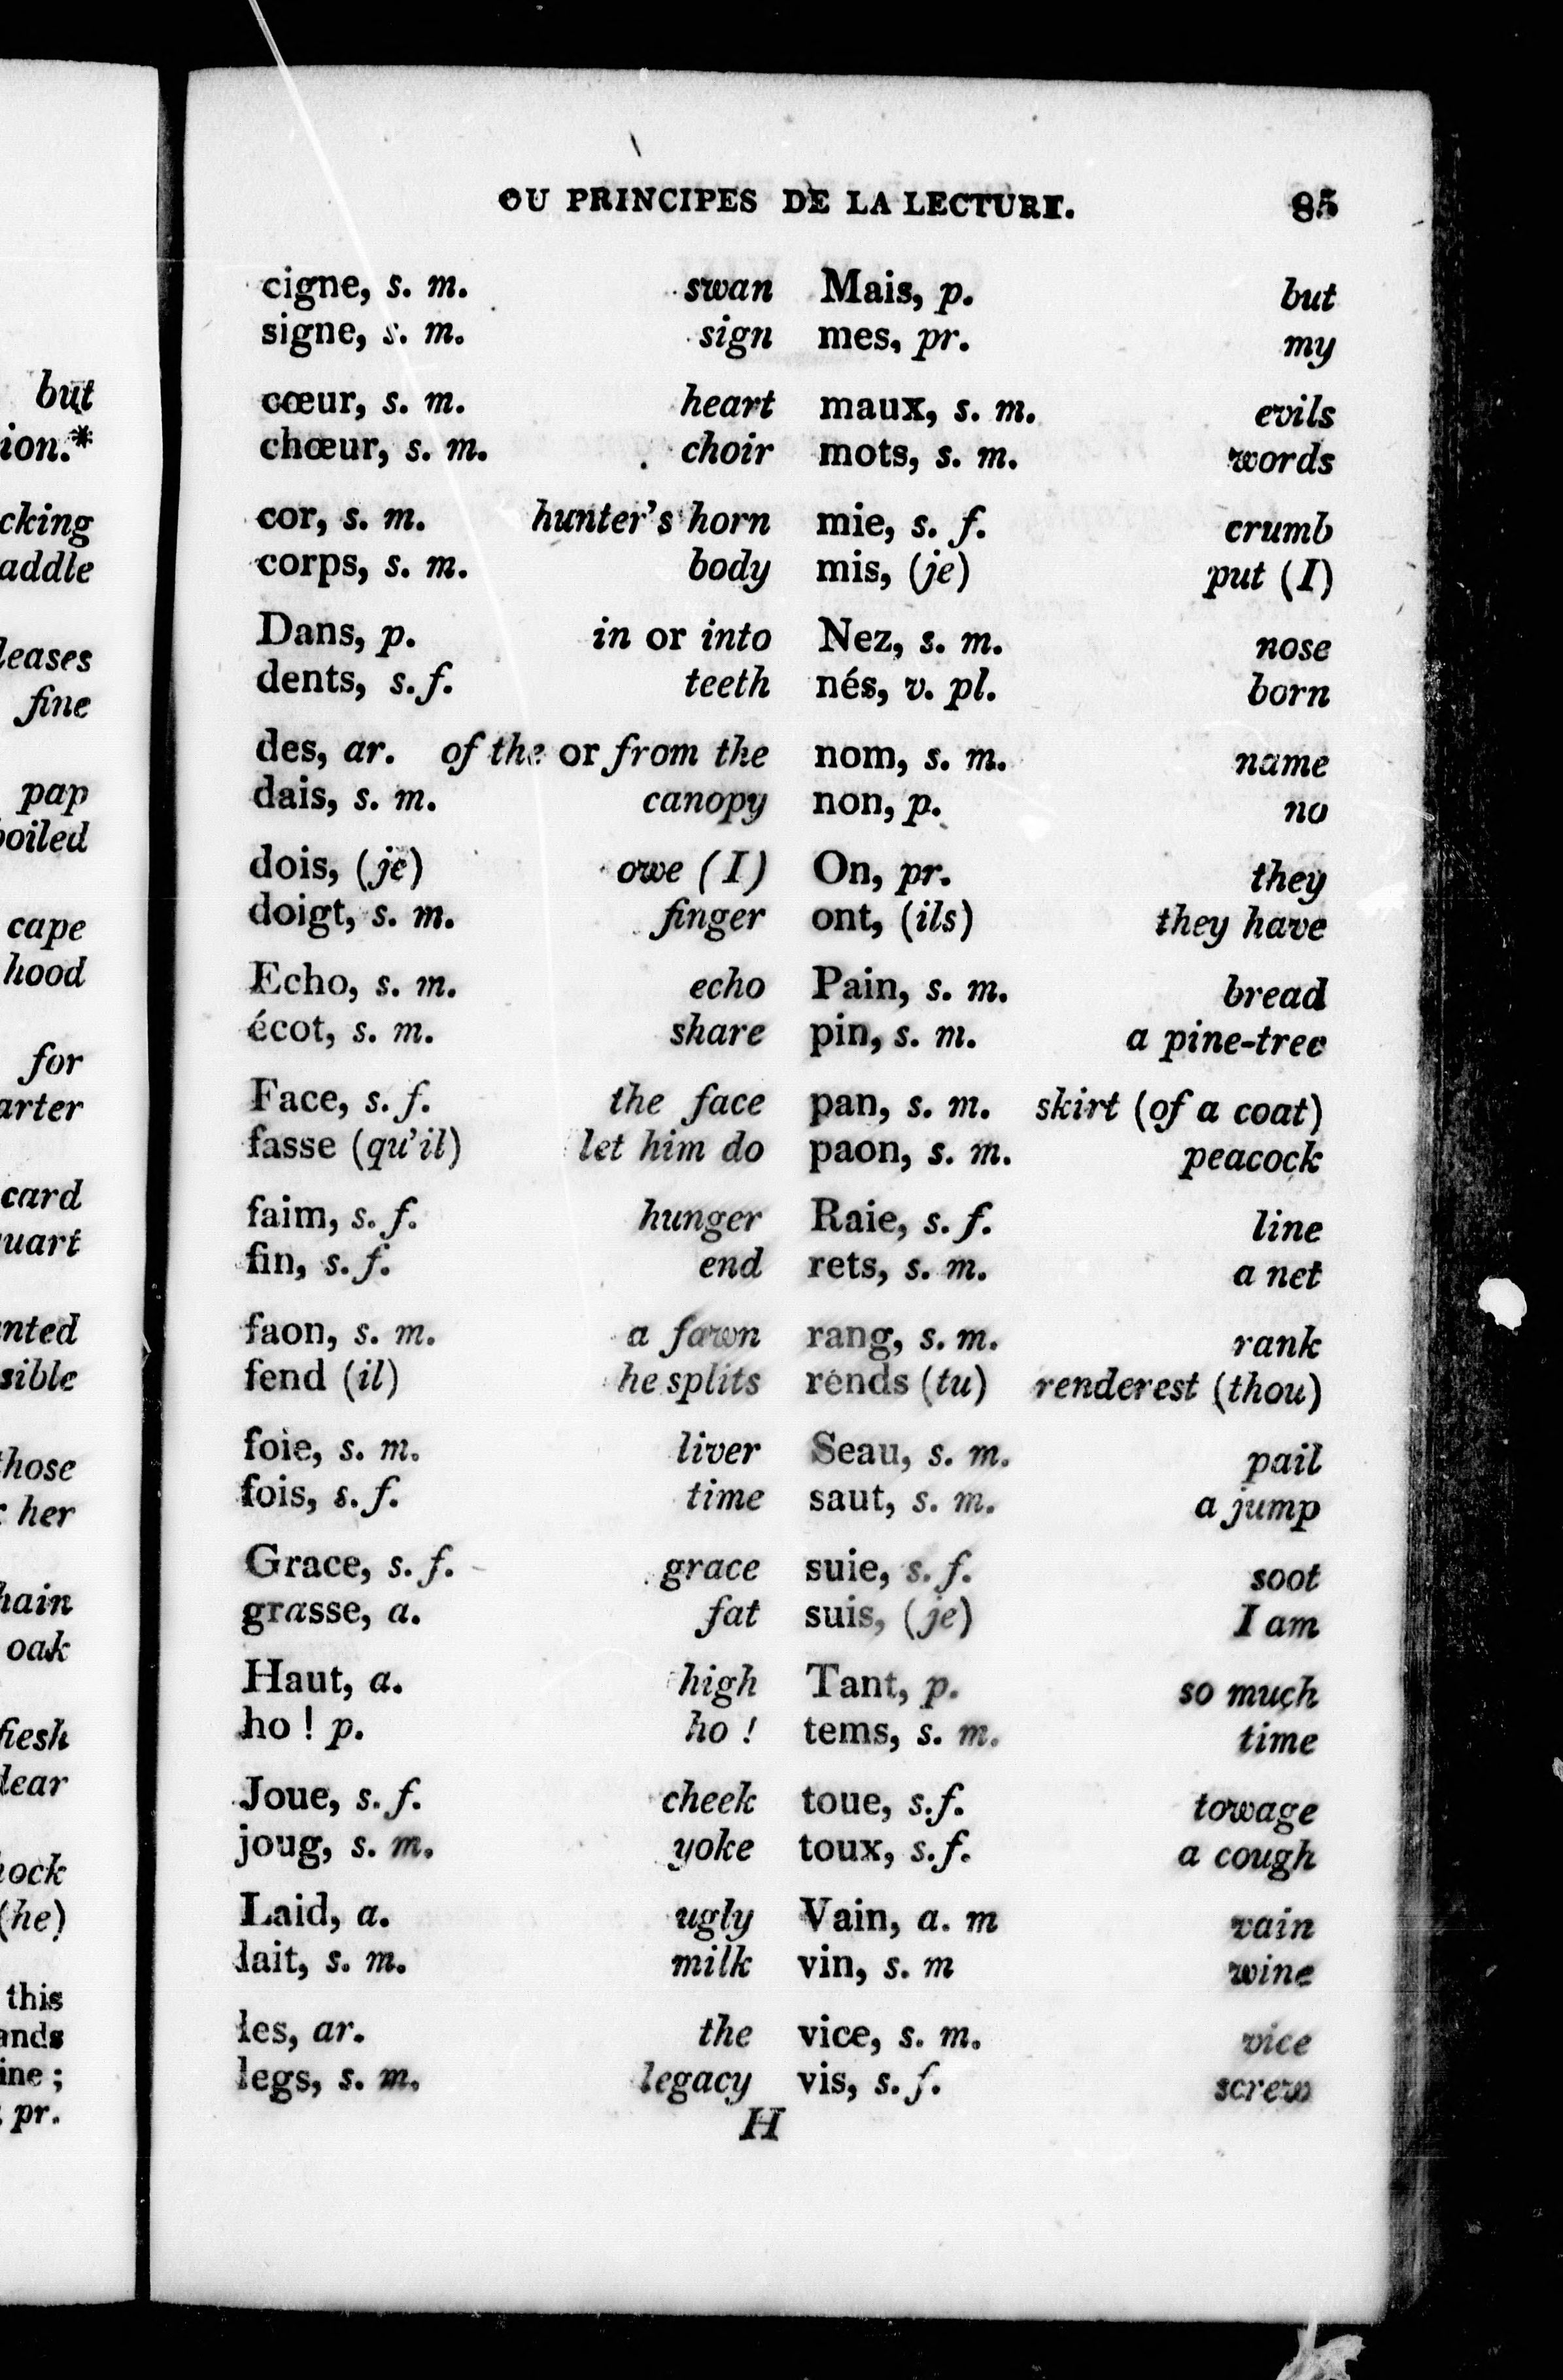 OU PRINCIPES DE LA LECTURE. 85
cigne, s. m. swan
signe, s. m. sign
cœur, s. m. heart
chœur, s. m. choir
cor, s. m. hunter's horn
corps, s. m. body
Dans, p. in or into
dents, s. f. teeth
des, ar. of the or from the
dais, s. m. canopy
dois, (je) owe (I)
doigt, s. m. finger
Echo, s. m. echo
écot, s. m. share
Face, s. f. the face
fasse (qu'il) let him do
faim, s. f. hunger
fin, s. f. end
faon, s. m. a fawn
fend (il) he splits
foie, s. m. liver
fois, s. f. time
Grace, s. f. grace
grasse, a. fat
Haut, a. high
ho ! p. ho !
Joue, s. f. cheek
joug, s. m. yoke
Laid, a. ugly
lait, s. m. milk
les, ar. the
legs, s. m. legacy
Mais, p. but
mes, pr. my
maux, s. m. evils
mots, s. m. words
mie, s. f. crumb
mis, (je) put (I)
Nez, s. m. nose
nés, v. pl. born
nom, s. m. name
non, p. no
On, pr. they
ont, (ils) they have
Pain, s. m. bread
pin, s. m. a pine-tree
pan, s. m. skirt (of a coat)
paon, s. m. peacock
Raie, s. f. line
rets, s. m. a net
rang, s. m. rank
rends (tu) renderest (thou)
Seau, s. m. pail
saut, s. m. a jump
suie, s. f. soot
suis, (je) I am
Tant, p. so much
tems, s. m. time
toue, s. f. towage
toux, s. f. a cough
Vain, a. m vain
vin, s. m wine
vice, s. m. vice
vis, s. f. screw
H
but
fine
pap
cape
hood
for
card
her
oak
(he)
this
pr.